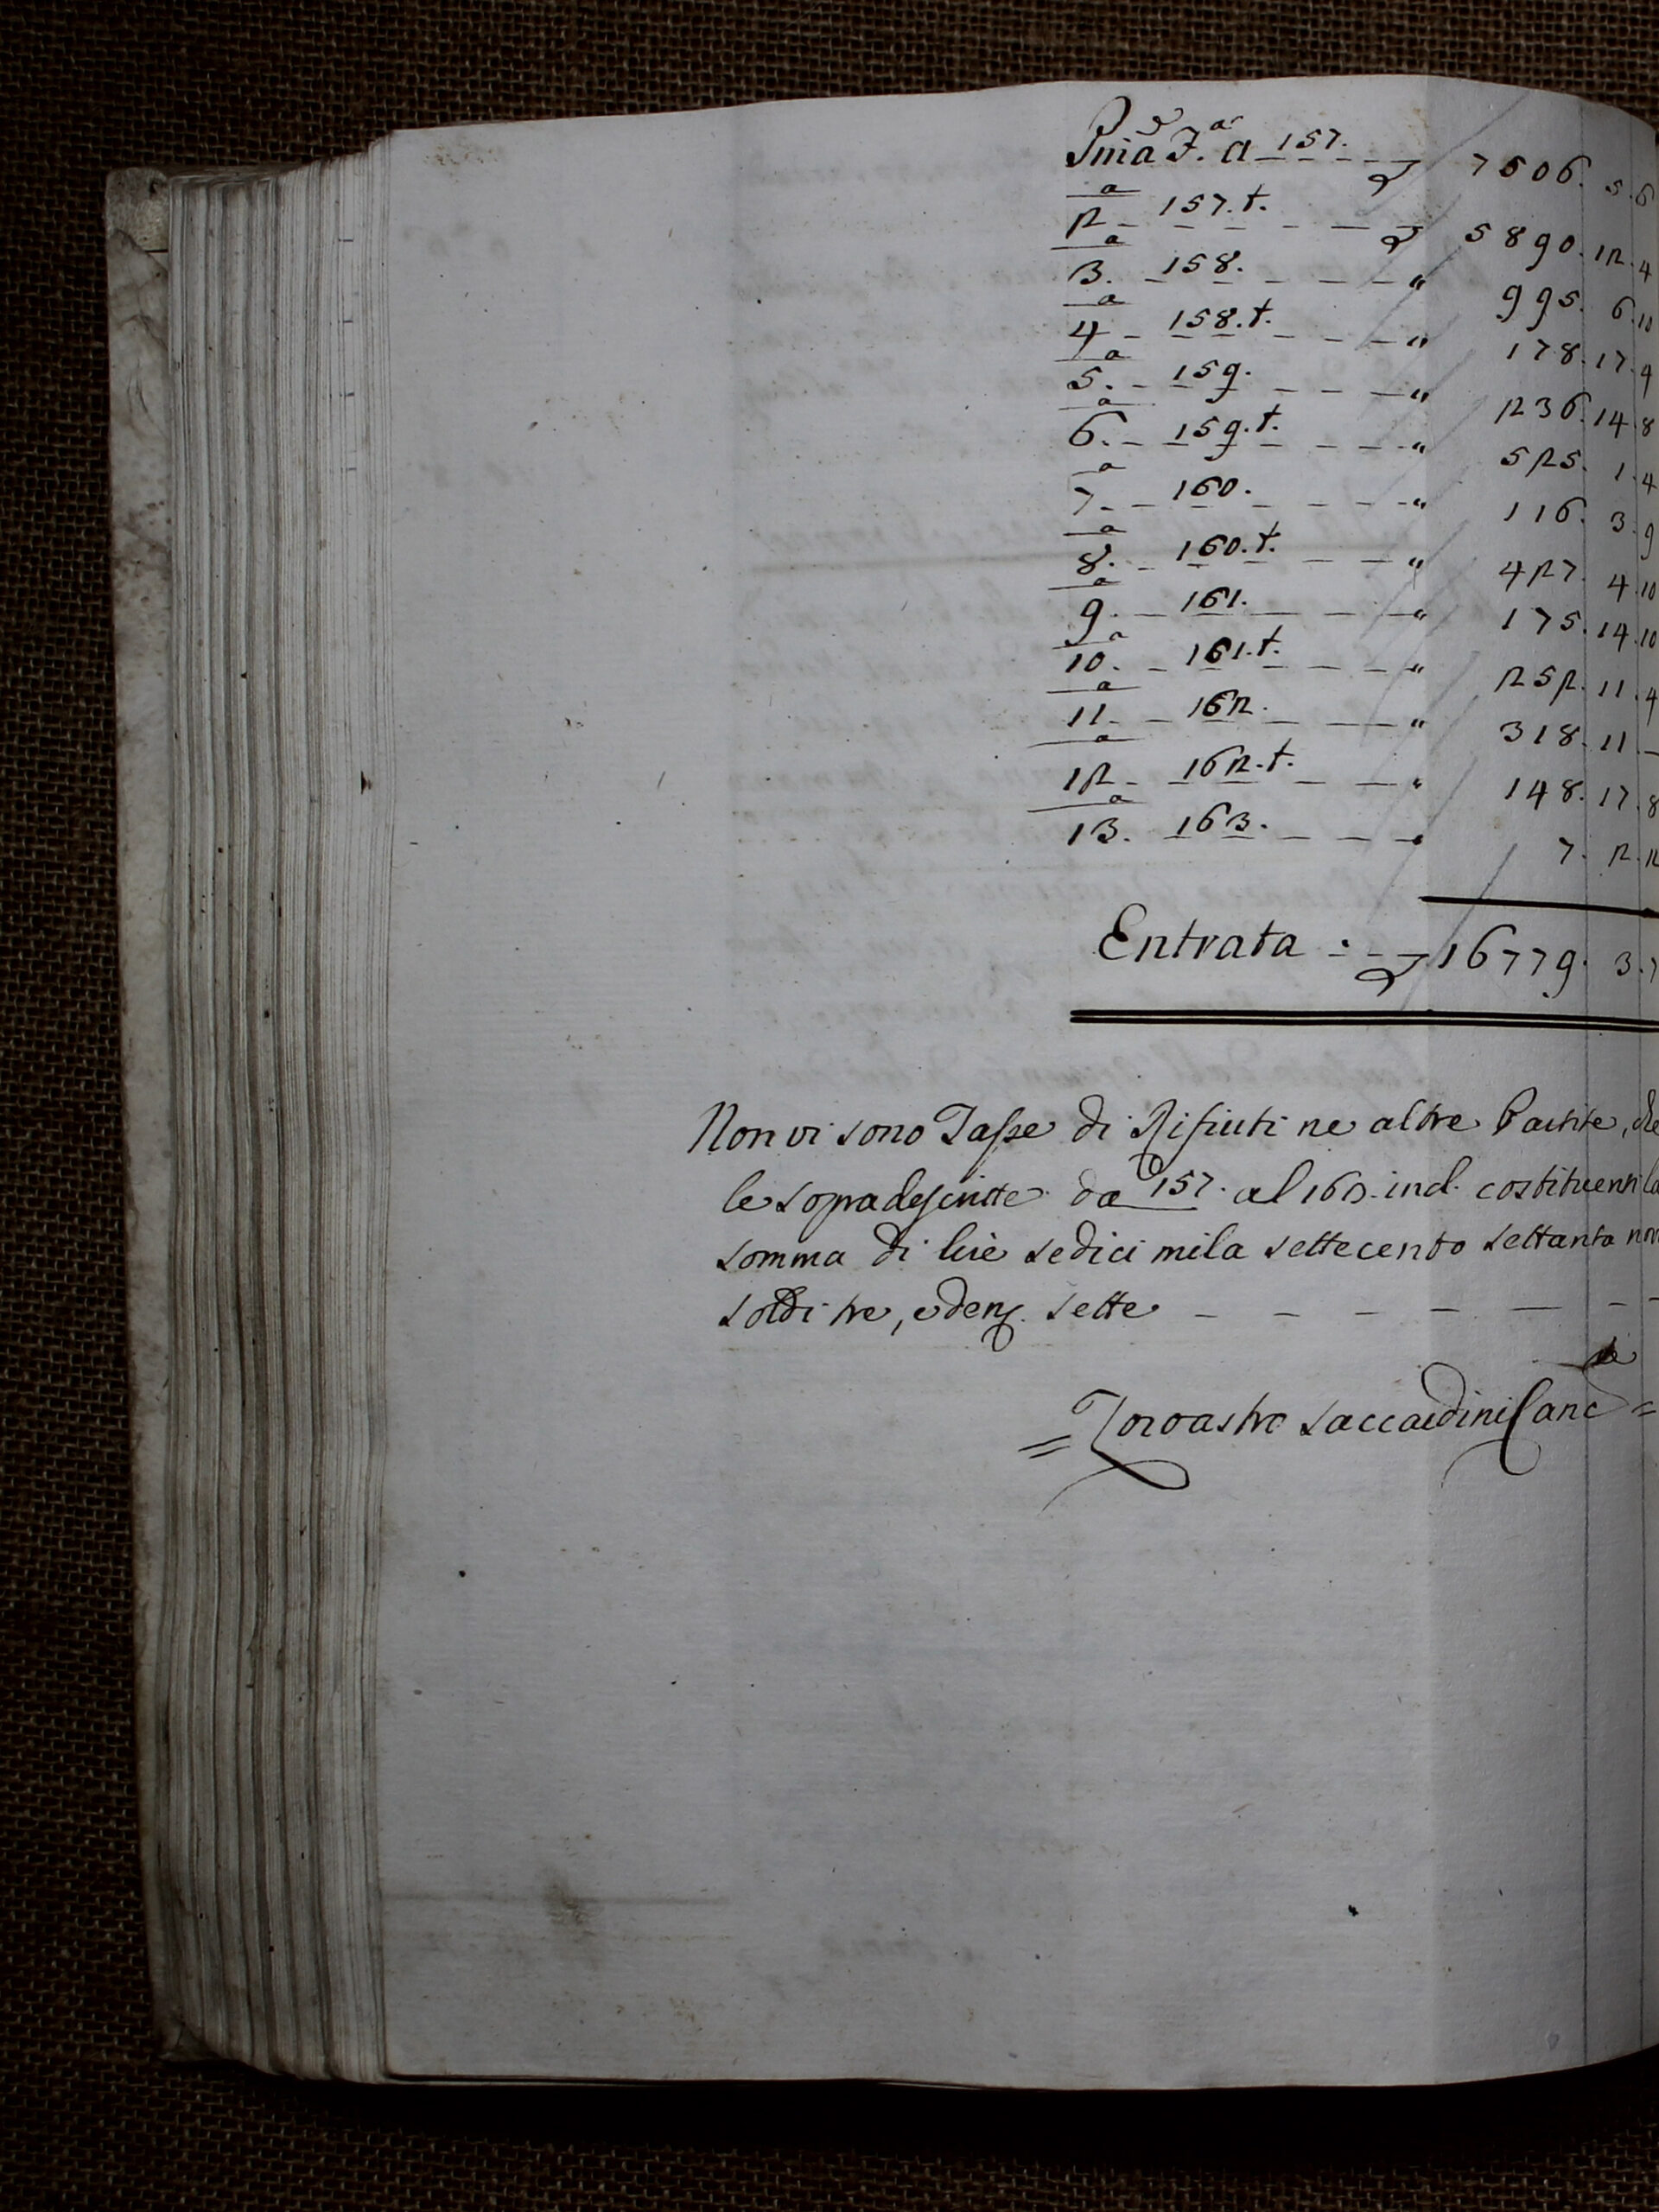 Pma F.a a 157. 7506. 5. 6
2a 157.t. 5890. 12. 4
3.a 158. " 995. 6. 10
4a 158.t. " 178. 17. 4
5.a 159. " 236. 14. 8
6.a 159.t. " 525. 1. 4
7.a 160. " 116. 3. 9
8.a 160.t. " 427. 4. 10
9.a 161. " 175. 14. 10
10.a 161.t. " 252. 11. 4
11.a 162. " 318. 11. –
12a 162.t. " 148. 17. 8
13.a 163. " 7. 2. 2
Entrata : 16779. 3. 7
Non vi sono Tasse di Rifiuti ne altre Partite, che
le sopradescritte da 157. al 163. incl. costituenti la
somma di lire sedici mila settecento settanta nov
soldi tre, e den. sette
= Zoroastro Saccardini Canc.re =